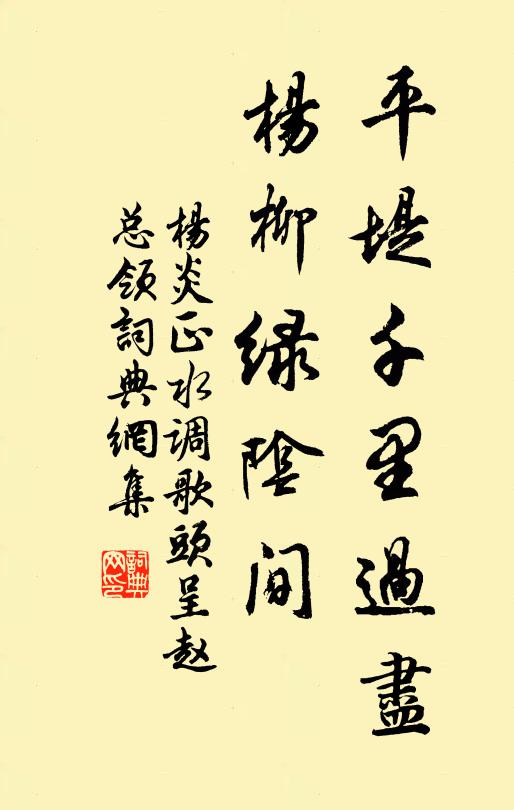 平堤千里過盡
楊柳綠陰間
楊炎正水调歌頭呈赵
总領詞典網集
詞典
网印